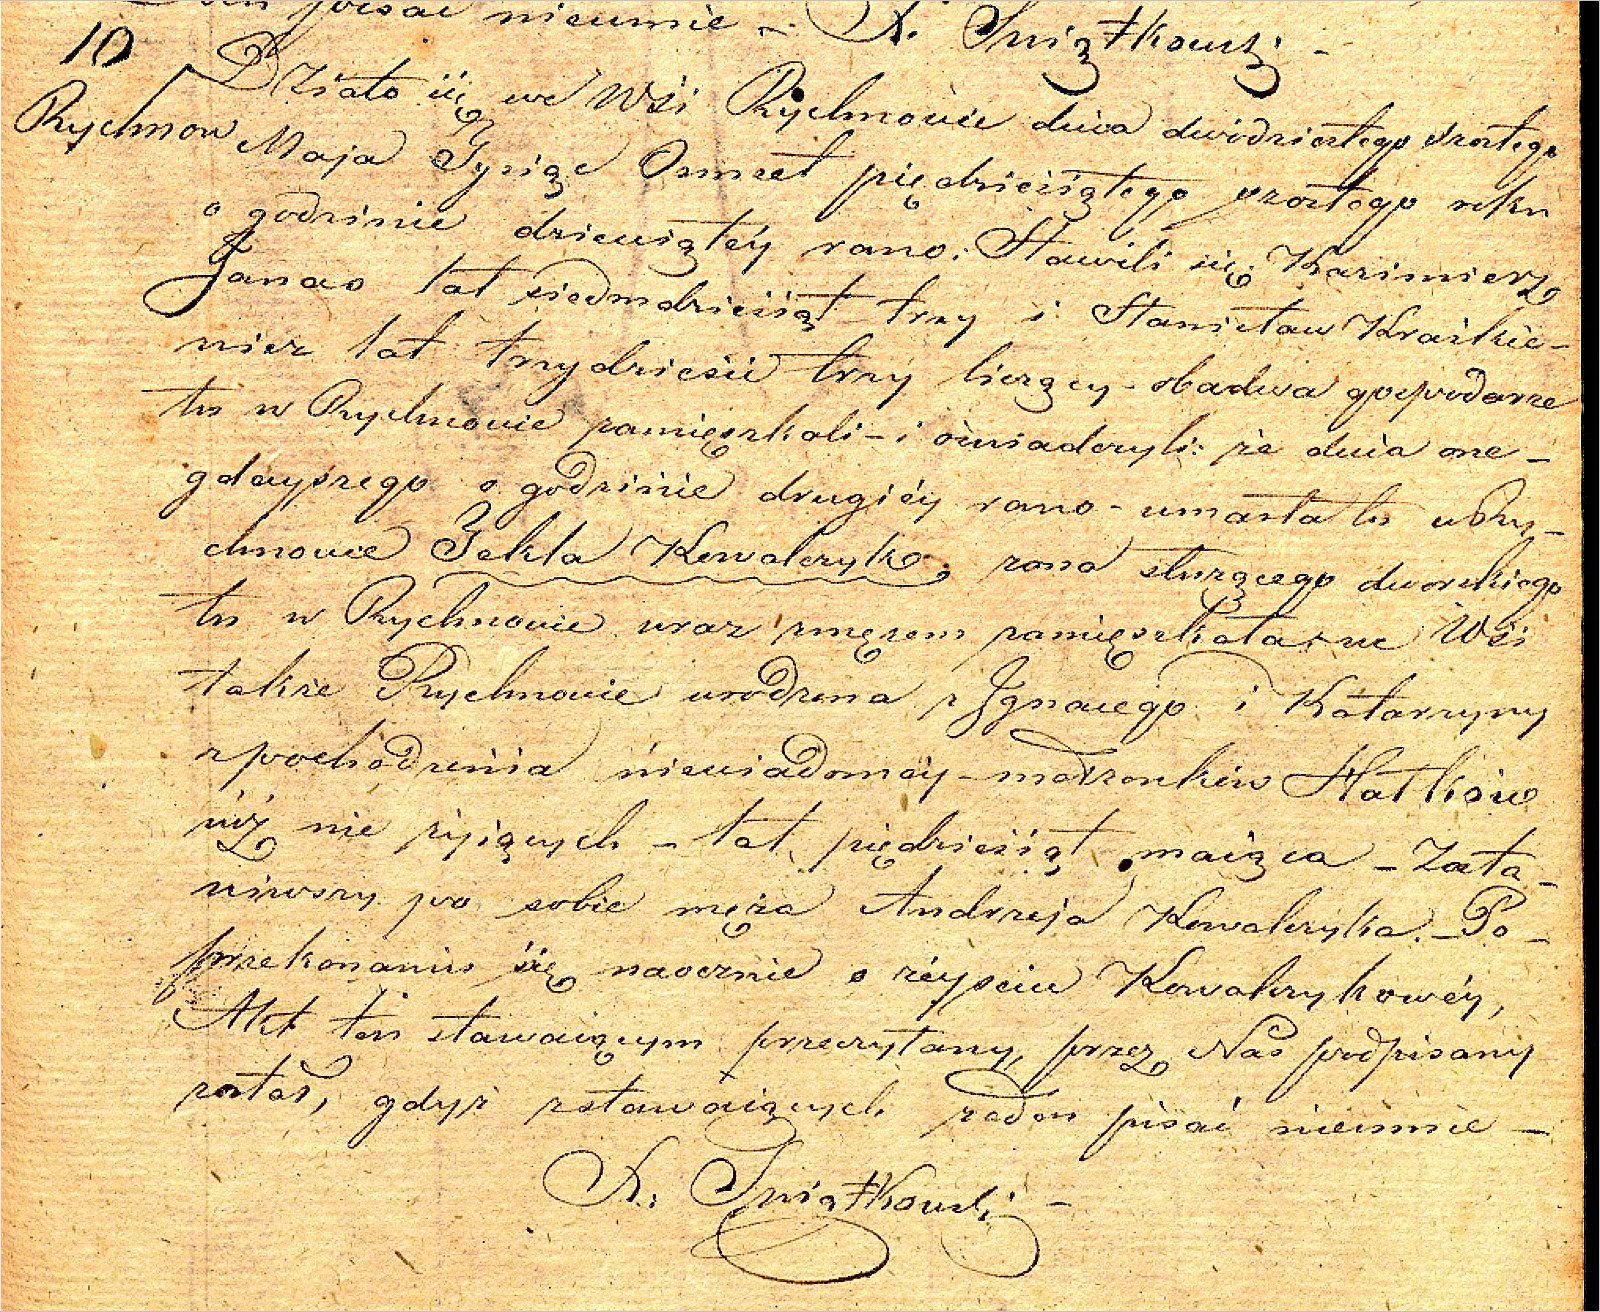 pisać nieumie – X. Świątkowski –
10 Działo się we Wsi Rychnowie dnia dwódziestego szóstego
Rychnow Maja Tysiąc Osmset piędziesiątego szóstego roku
o godzinie dziewiątéy rano. Stawili się Kazimierz
Janas lat siedmdziesiąt trzy i Stanisław Kraskie-
wicz lat trzydzieście trzy liczący – obadwa gospodarze
tu w Rychnowie zamięszkali – i oświadczyli: że dnia one-
gdayszego o godzinie drugiéy rano – umarła tu w Ry-
chnowie Tekla Kowalczyk, zona służącego dworskiego
tu w Rychnowie wraz zmężem zamięszkała, we Wsi
także Rychnowie urodzona z Ignacego i Katarzyny
z pochodzenia niewiadomey – małżonków Hatków
iuż nie żyiących – lat pięćdziesiąt maiąca – Zosta-
wiwszy po sobie męża Andrzeja Kowalczyka. – Po
przekonaniu się naocznie o zeyściu Kowalczykowéy,
Akt ten stawaiącym przeczytany, przez Nas podpisany
został, gdyż zstawaiących żaden pisać nieumie –
X. Świątkowski –